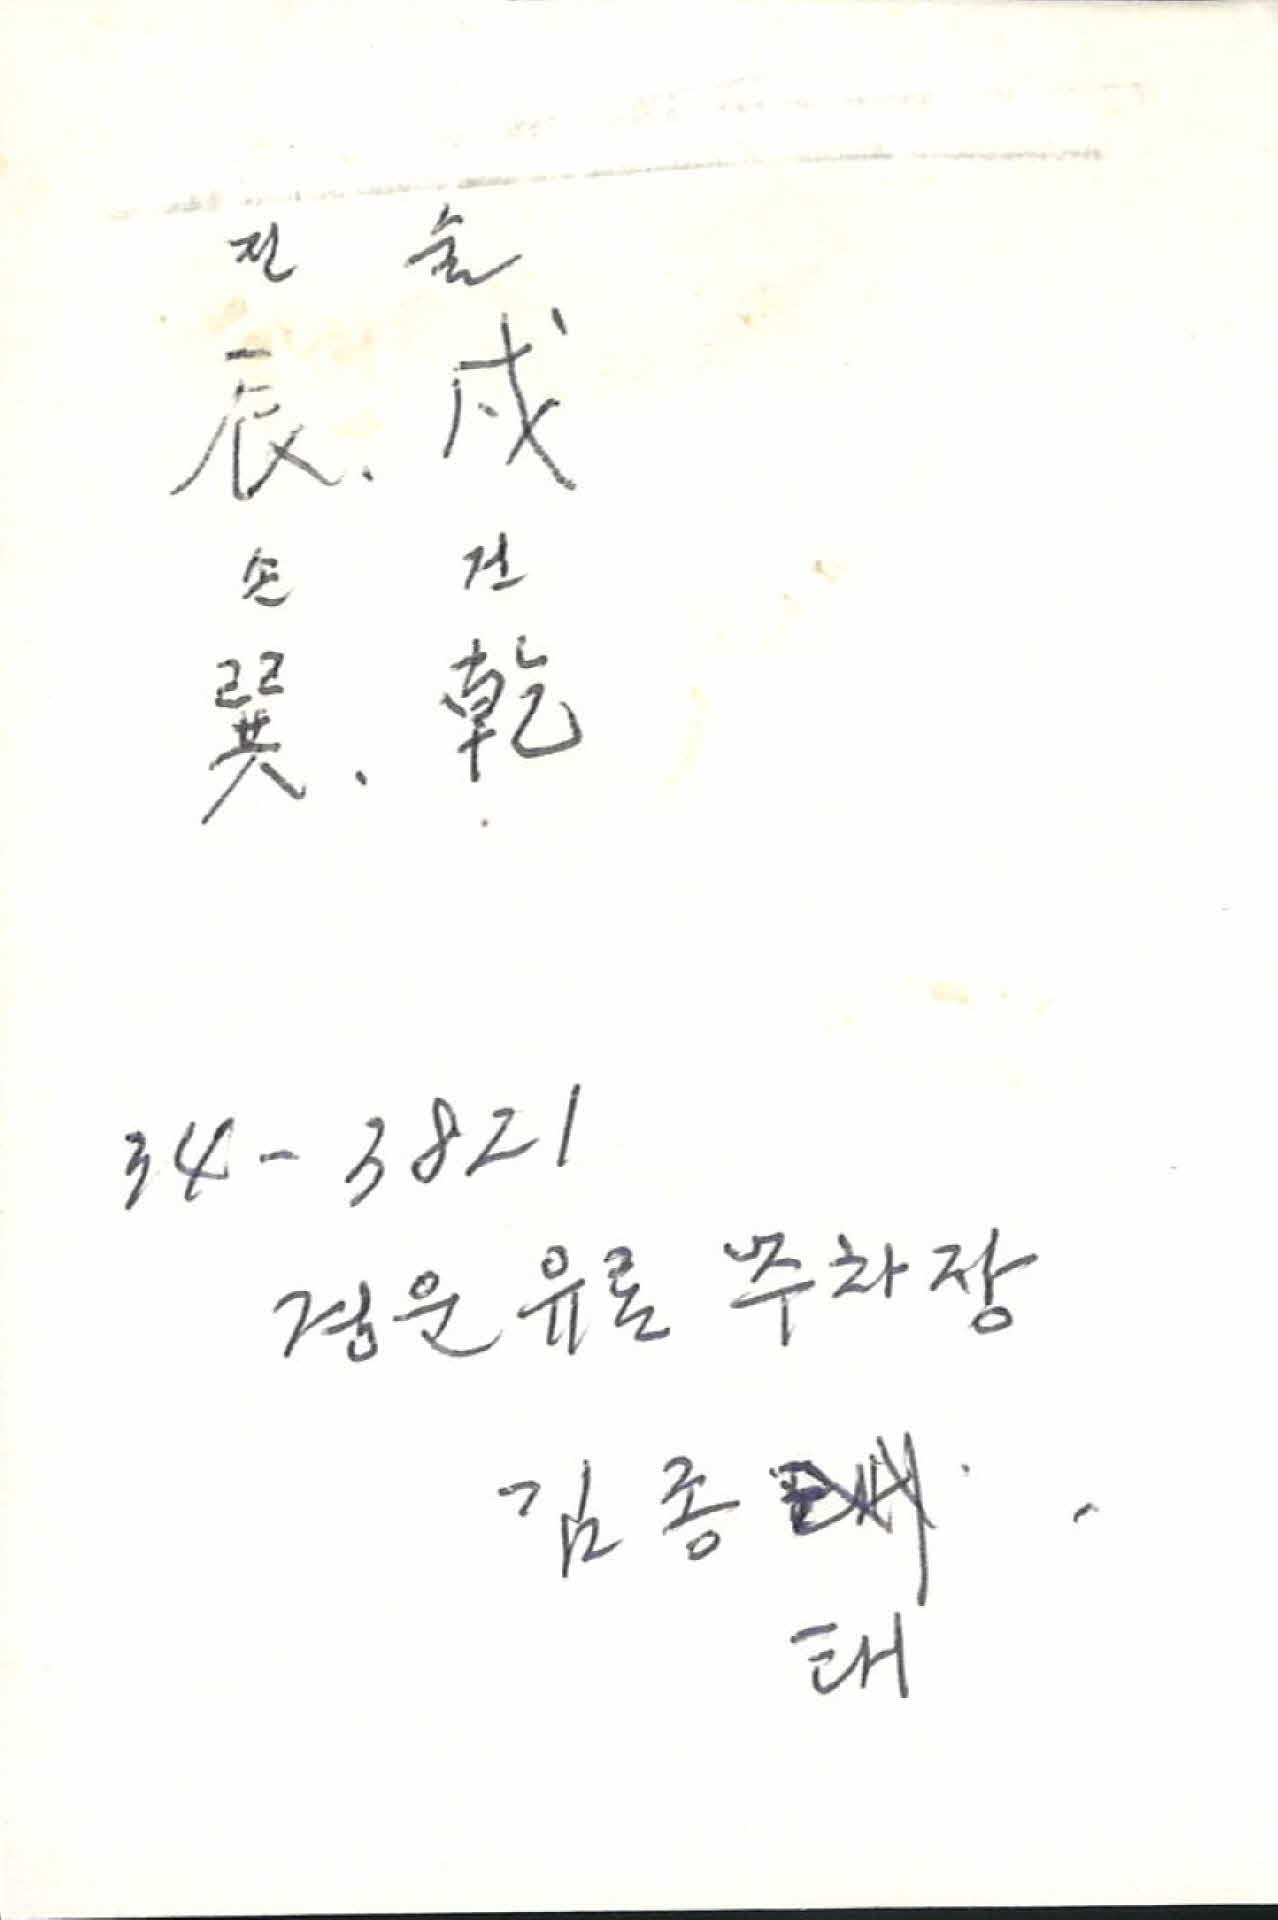 진 술
辰. 戌
손 건
巽. 乾
34-3821
경운유료 주차장
김종
태